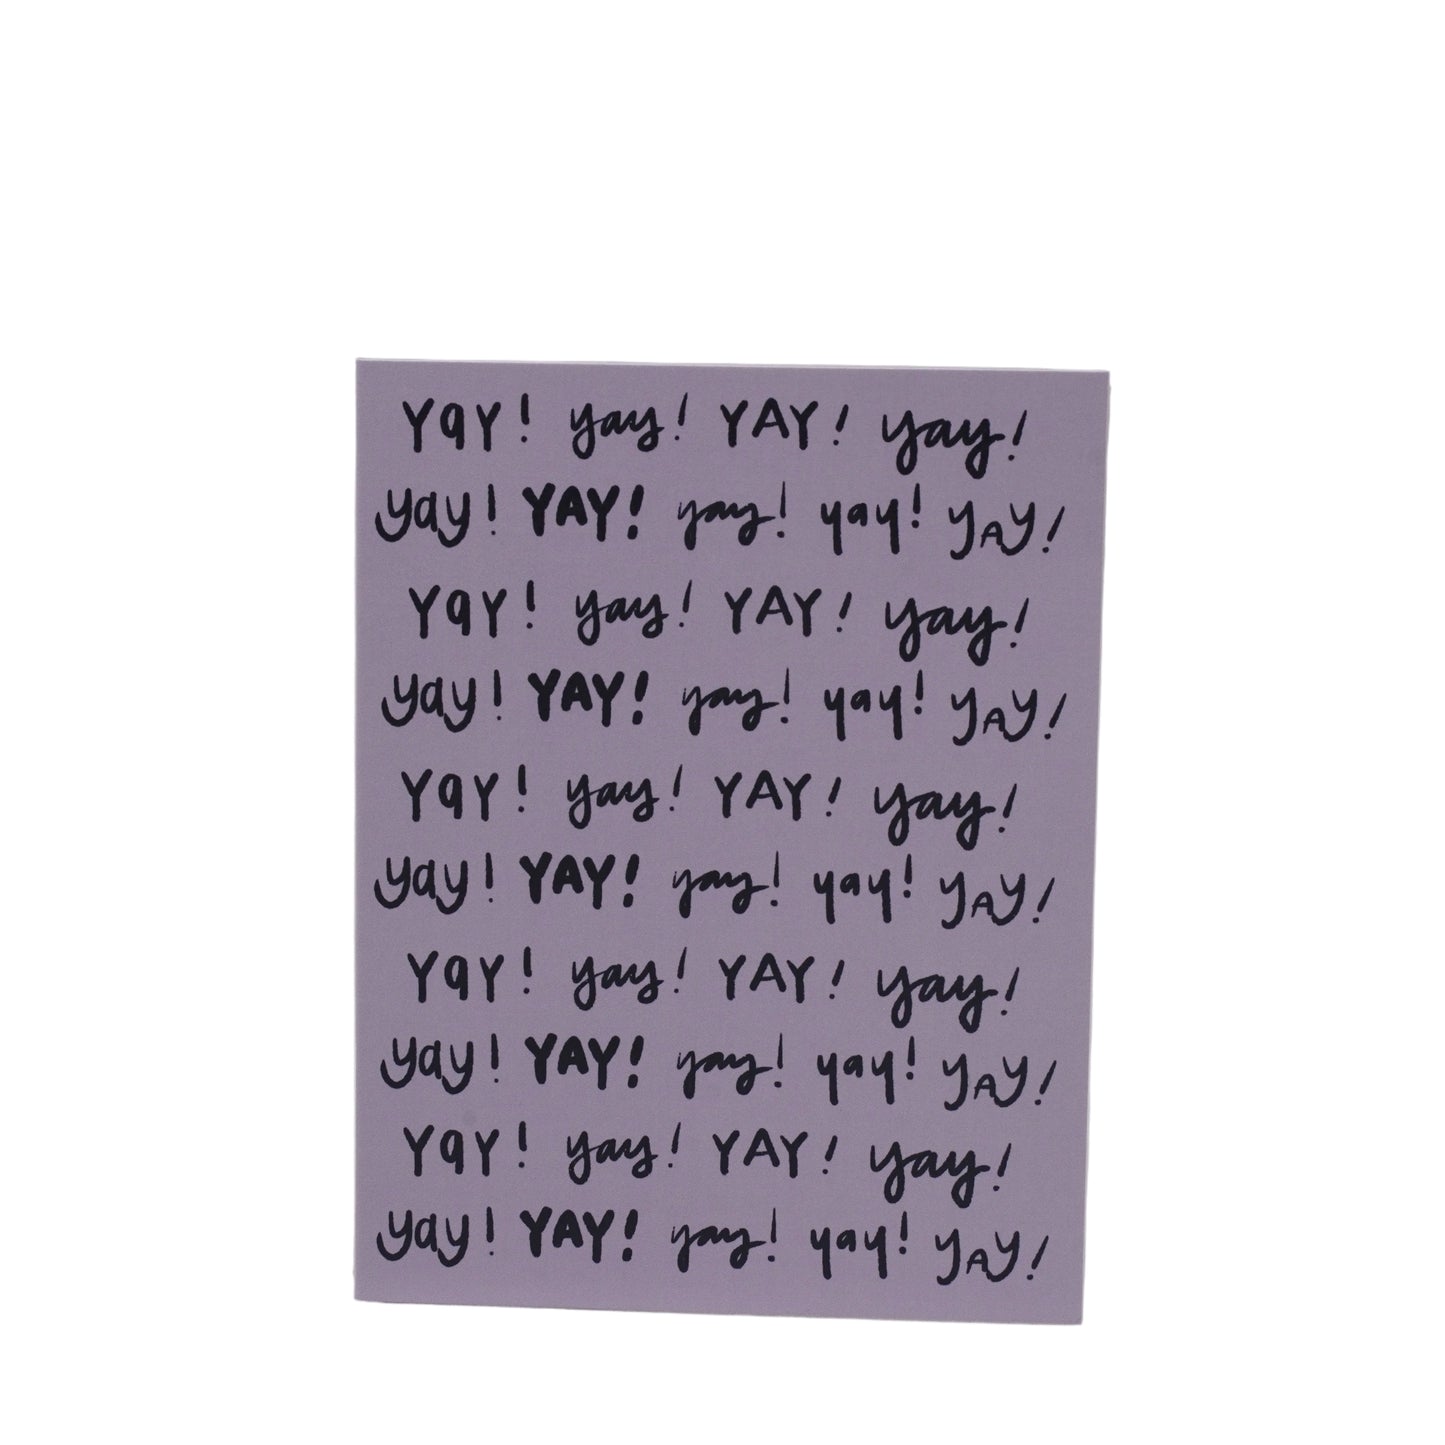 YaY! yay! YAY! yay!
yay! YAY! yay! yay! YAY!
YaY! yay! YAY! yay!
yay! YAY! yay! yay! YAY!
YaY! yay! YAY! yay!
yay! YAY! yay! yay! YAY!
YaY! yay! YAY! yay!
yay! YAY! yay! yay! YAY!
YaY! yay! YAY! yay!
yay! YAY! yay! yay! YAY!